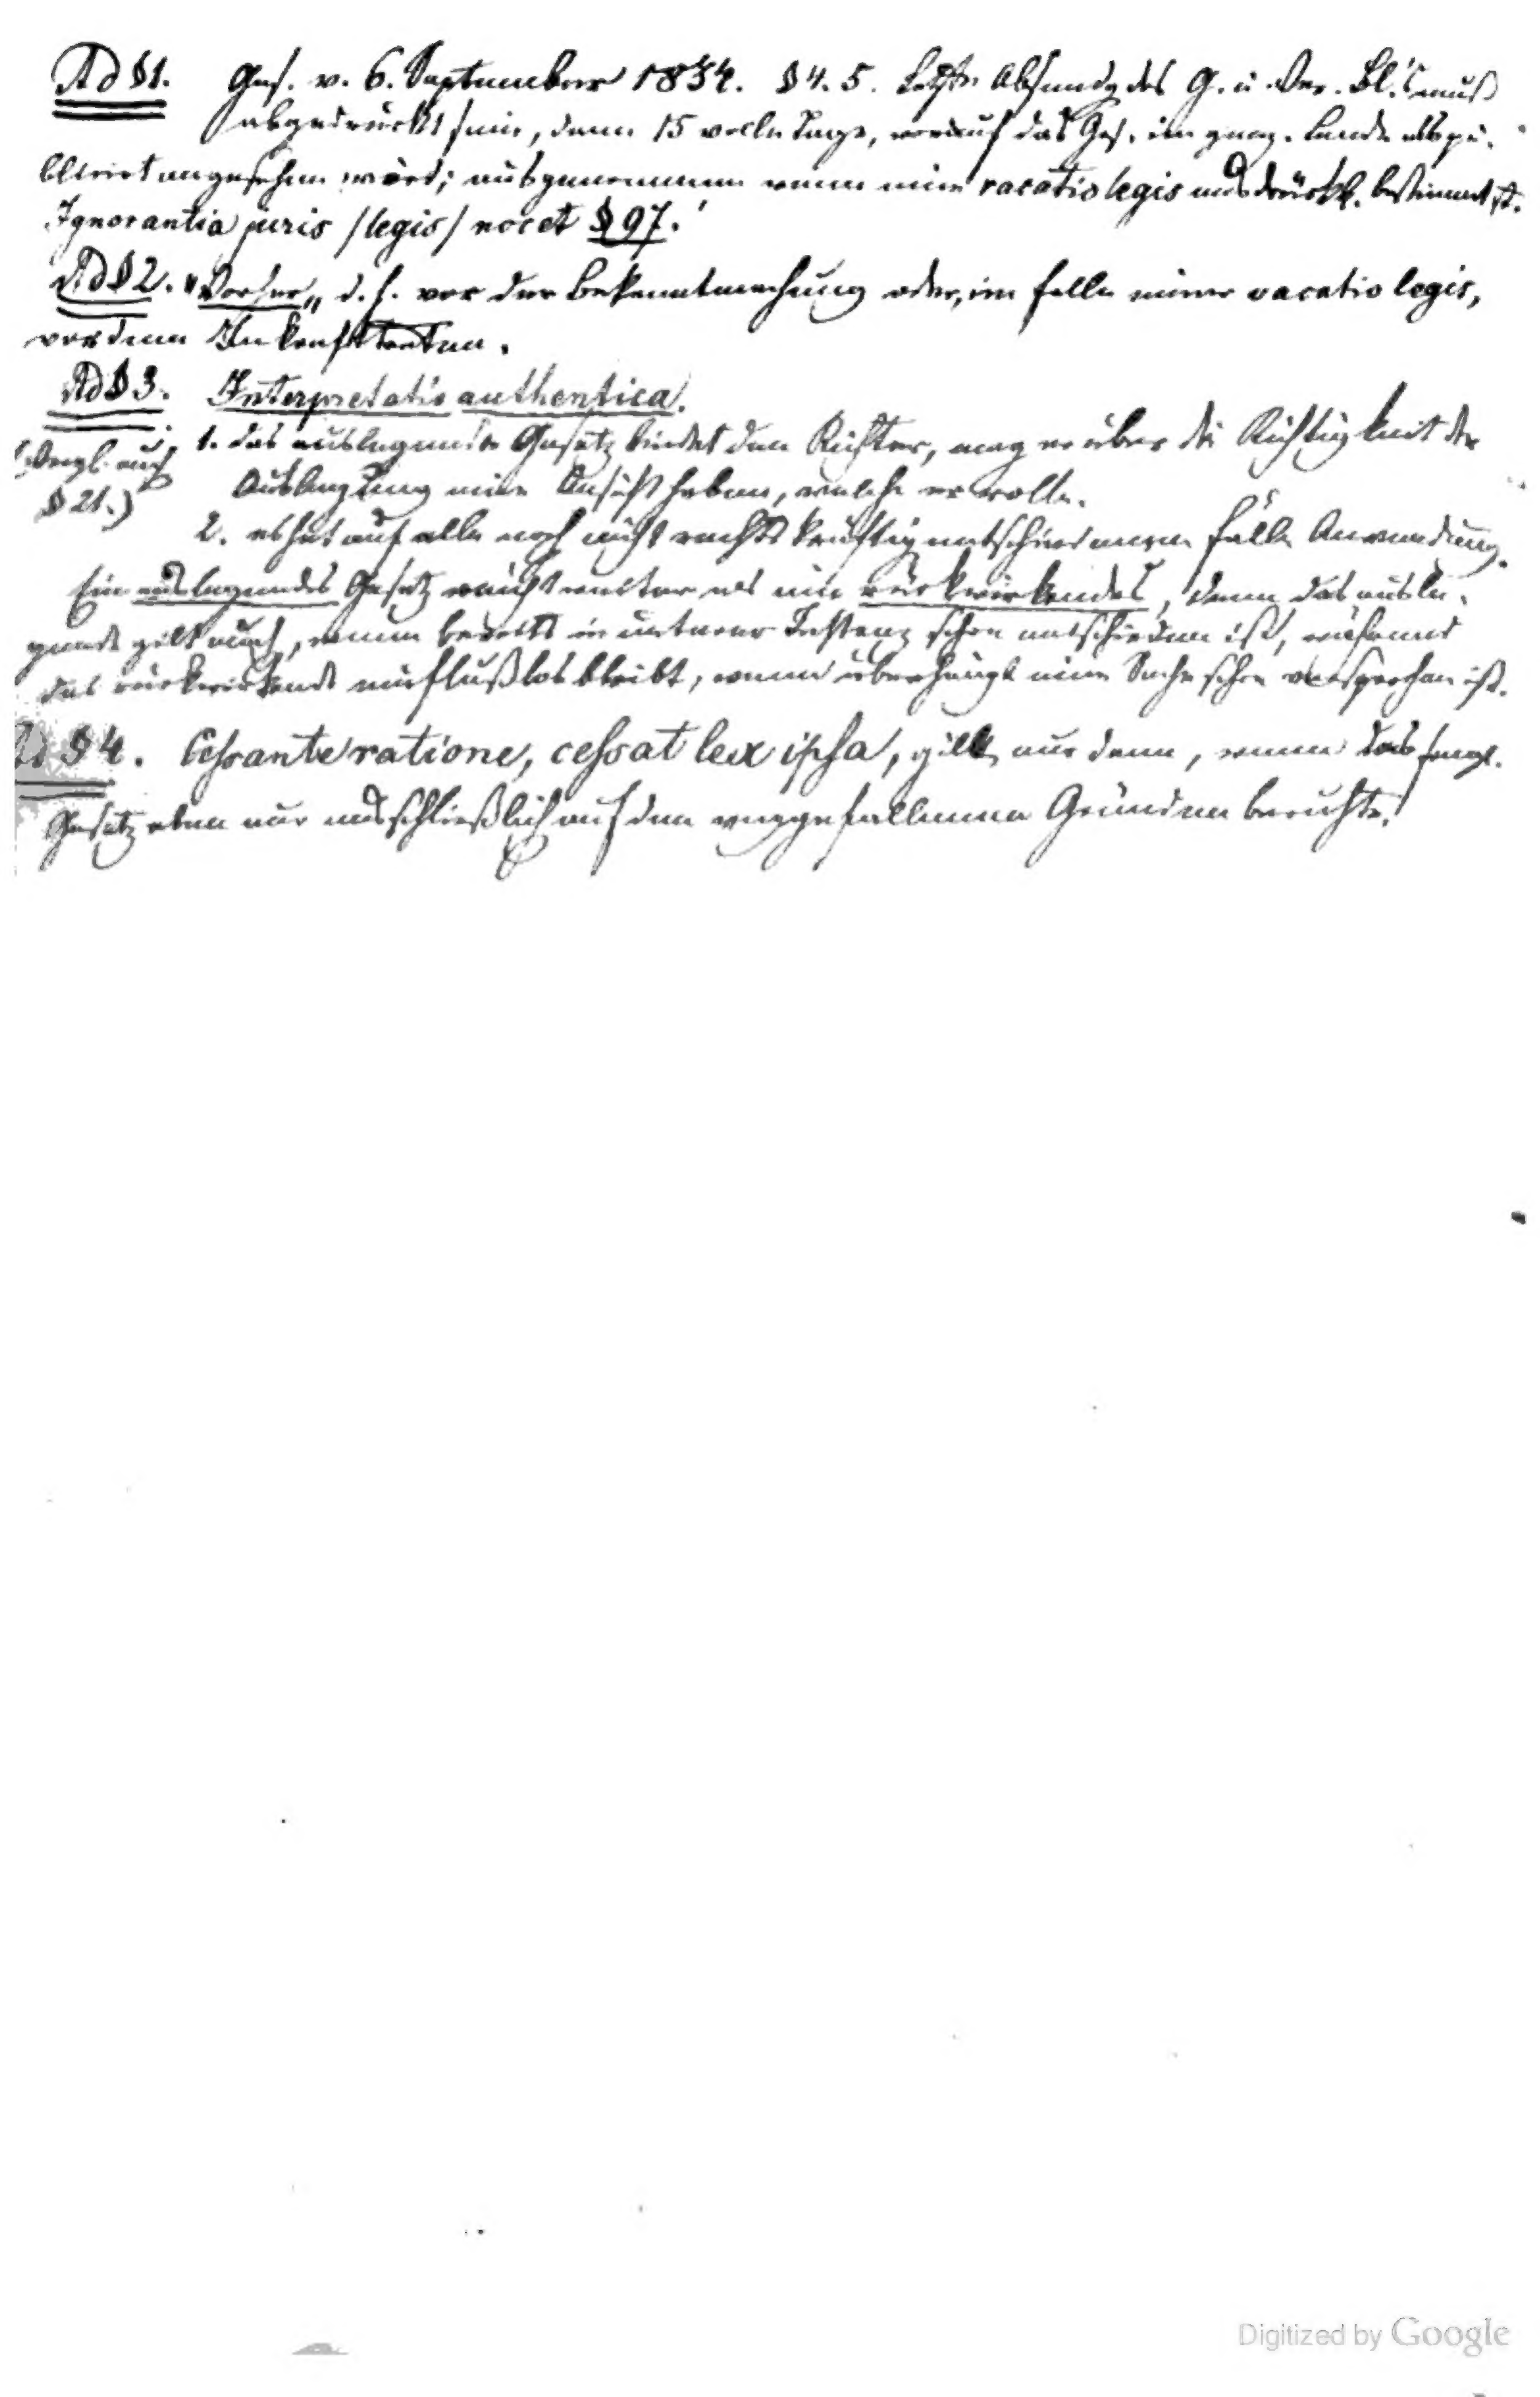 Ad § 1. Ges. v. 6. September 1834. § 4. 5. Letzte Absendg des G. u. Ver. Bl.'s muß
abgedruckt sein, dann 15 volle Tage, worauf das Ges. im ganz. Lande als pu-
blicirt angesehen wird; ausgenommen wenn eine vacatio legis ausdrückl. bestimmt ist.
Ignorantia juris /legis/ nocet § 97.
Ad § 2. "Vorher" d. h. vor der Bekanntmachung oder, im Falle einer vacatio legis,
vor dem Inkrafttreten.
Ad § 3. Interpretatio authentica.
(Vergl. auch
§ 21.)
1. das auslegende Gesetz bindet den Richter, mag er über die Richtigkeit der
Auslegung eine Ansicht haben, welche er wolle.
2. es hat auf alle noch nicht rechtskräftig entschiedenen Fälle Anwendung.
Ein auslegendes Gesetz reicht weiter als ein rückwirkendes, denn das ausle-
gende gilt auch, wenn bereits in unterer Instanz schon entschieden ist, während
das rückwirkende einflußlos bleibt, wenn überhaupt eine Sache schon versprochen ist.
Ad § 4. Cessante ratione, cessat lex ipsa, gilt nur dann, wenn das fragl.
Gesetz eben nur ausschließlich auf den weggefallenen Gründen beruhte.
Digitized by Google